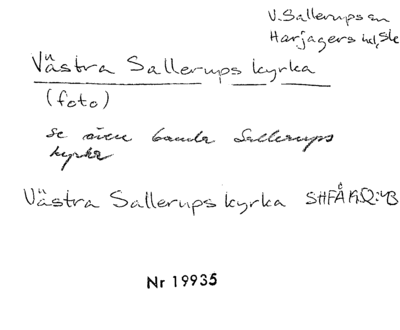 V. Sallerups sn
Harjagers hd, Sk
Västra Sallerups kyrka
(foto)
se även Gamla Sallerups
kyrka
Västra Sallerups kyrka SHFÅ
Nr 19935